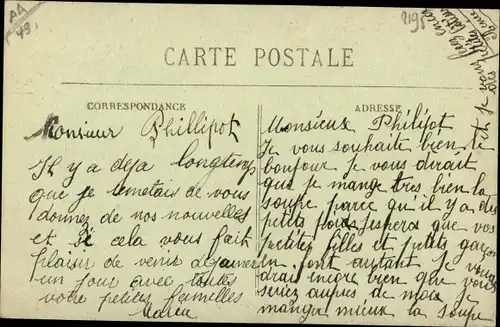 AA
49.
2195
CARTE POSTALE
CORRESPONDANCE
Monsieur Phillipot
Il y a deja longtemp
que je remetais de vous
donnez de nos nouvelles
et Si cela vous fait
plaisir de venir dejeuner
un jour avec toutes
votre petites famelles
ADRESSE
Monsieux Philipot
Je vous souhaite bien le
bonjour je vous dirait
que je mange tres bien la
soupe parce qu'il y a des
petits pois jespere que vos
petites filles et petits garçon
en font autant je vou
drais encore bien que vous
seriez aupres de mois je
manger mieux la soupe
et je